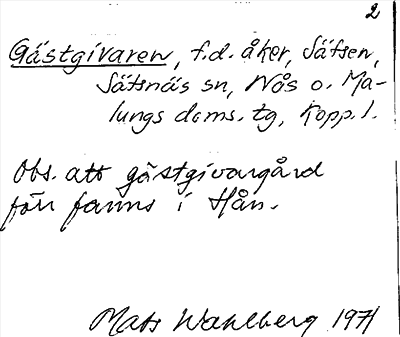 2
Gästgivaren, f.d. åker, Säfsen,
Säfsnäs sn, Nås o. Ma-
lungs doms. tg, Kopp. l.
Obs. att gästgivargård
förr fanns i Hån.
Mats Wahlberg 1971